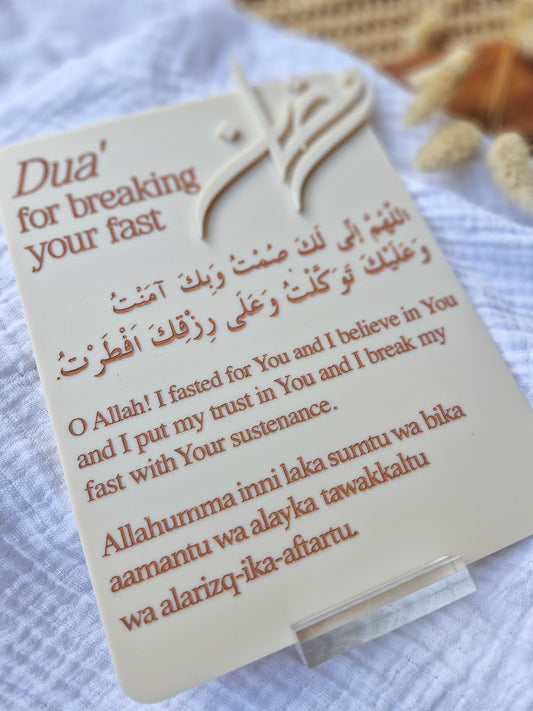 Dua'
for breaking
your fast
اَللّٰهُمَّ اِنِّی لَكَ صُمْتُ وَبِكَ اٰمَنْتُ
وَعَلَيْكَ تَوَكَّلْتُ وَعَلٰی رِزْقِكَ اَفْطَرْتُ.
O Allah! I fasted for You and I believe in You
and I put my trust in You and I break my
fast with Your sustenance.
Allahumma inni laka sumtu wa bika
aamantu wa alayka tawakkaltu
wa alarizq-ika-aftartu.